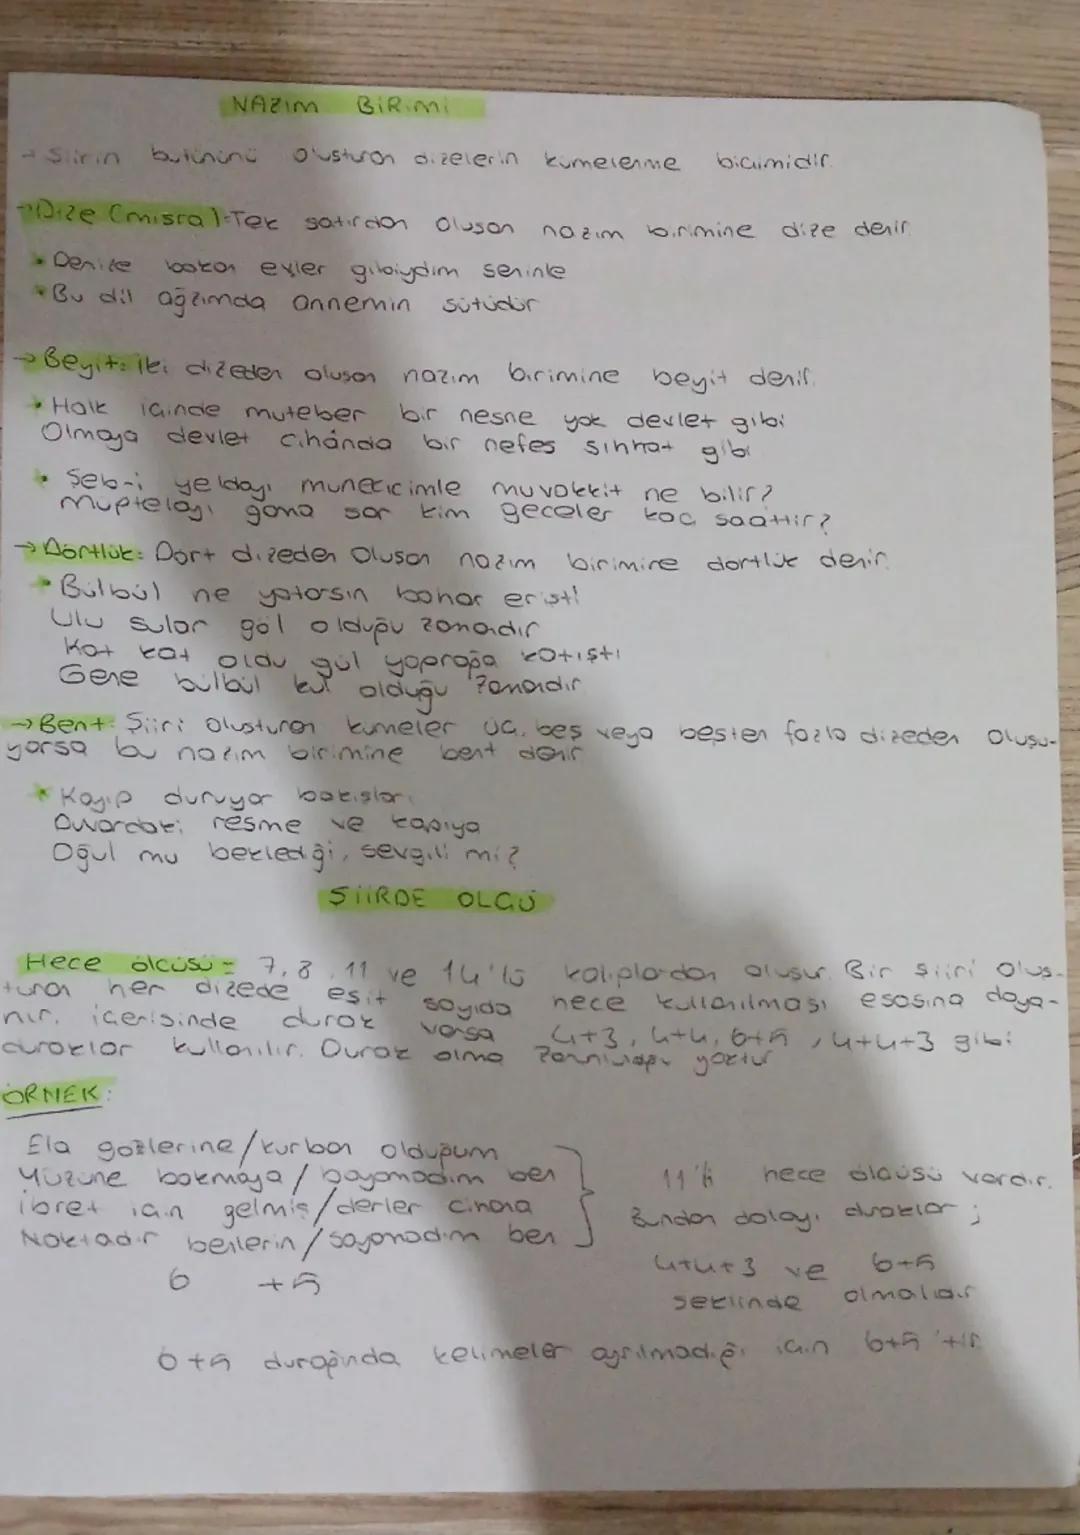 NAZIM BİRİMİ
→ Şiirin bütününü oluşturan dizelerin kümelenme biçimidir.
→Dize (mısra): Tek satırdan oluşan nazım birimine dize denir.
* Denize bakan evler gibiydim seninle
* Bu dil ağzımda annemin sütüdür
→Beyit: İki dizeden oluşan nazım birimine beyit denir.
* Halk içinde muteber bir nesne yok devlet gibi
Olmaya devlet cihânda bir nefes sıhhat gibi
* Şeb-i yeldayı müneccimle muvakkit ne bilir?
Müptelayı gama sor kim geceler kaç saattir?
→Dörtlük: Dört dizeden oluşan nazım birimine dörtlük denir.
* Bülbül ne yatarsın bahar erişti
Ulu sular göl olduğu zamandır
Kat kat oldu gül yaprağa katıştı
Gene bülbül kul olduğu zamandır
→Bent: Şiiri oluşturan kümeler üç, beş veya beşten fazla dizeden oluşu-
yorsa bu nazım birimine bent denir
* Kayıp duruyor bakışları
Duvardaki resme ve kapıya
Oğul mu beklediği, sevgili mi?
ŞİİRDE ÖLÇÜ
Hece ölçüsü = 7, 8, 11 ve 14'lü kalıplardan oluşur. Bir şiiri oluş-
turan her dizede eşit sayıda hece kullanılması esasına daya-
nır. içerisinde durak varsa 4+3, 4+4, 6+5, 4+4+3 gibi
duraklar kullanılır. Durak olma zorunluluğu yoktur
ÖRNEK:
Ela gözlerine/kurban olduğum
Yüzüne bakmaya/doyamadım ben
ibret için gelmiş/derler cihana
Noktadır benlerin/sayamadım ben
6 +5
11'li hece ölçüsü vardır.
Bundan dolayı duraklar;
4+4+3 ve 6+5
şeklinde olmalıdır
6+5 durağında kelimeler ayrılmadığı için 6+5'tir.